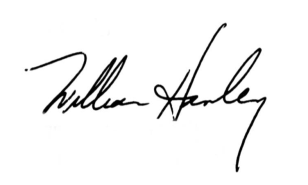 William Hanley